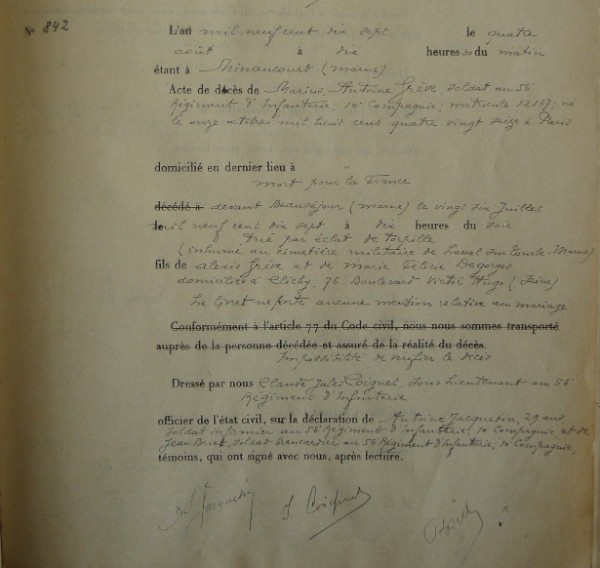 No 842
L'an mil neuf cent dix sept le quatre
août à dix heures 30 du matin
étant à Minaucourt (marne)
Acte de décès de Marius, Antoine Grève soldat au 56
Régiment d'Infanterie, 10e Compagnie, matricule 12167; né
le onze octobre mil huit cent quatre vingt seize à Paris
domicilié en dernier lieu à
mort pour la France
décédé à devant Beauséjour (marne) le vingt six Juillet
mil neuf cent dix sept à dix heures du soir
tué par éclat de torpille
(inhumé au cimetière militaire de Laval sur Tourbe-Marne)
fils de alexis Grève et de marie Félicie Degorges
domiciliés à Clichy, 76 Boulevard Victor Hugo (Seine)
Le livret ne porte aucune mention relative au mariage
Conformément à l'article 77 du Code civil, nous nous sommes transporté
auprès de la personne décédée et assuré de la réalité du décès.
Impossibilité de vérifier le décès
Dressé par nous Claude Jules Coignet, Sous Lieutenant au 56
Régiment d'Infanterie
officier de l'état civil, sur la déclaration de Antoine Jacquetin, 29 ans,
soldat infirmier au 56 Régiment d'Infanterie, 10 Compagnie et de
Jean soldat brancardier au 56 Régiment d'Infanterie, 10 Compagnie,
témoins, qui ont signé avec nous, après lecture.
A Jacquetin J. Coignet